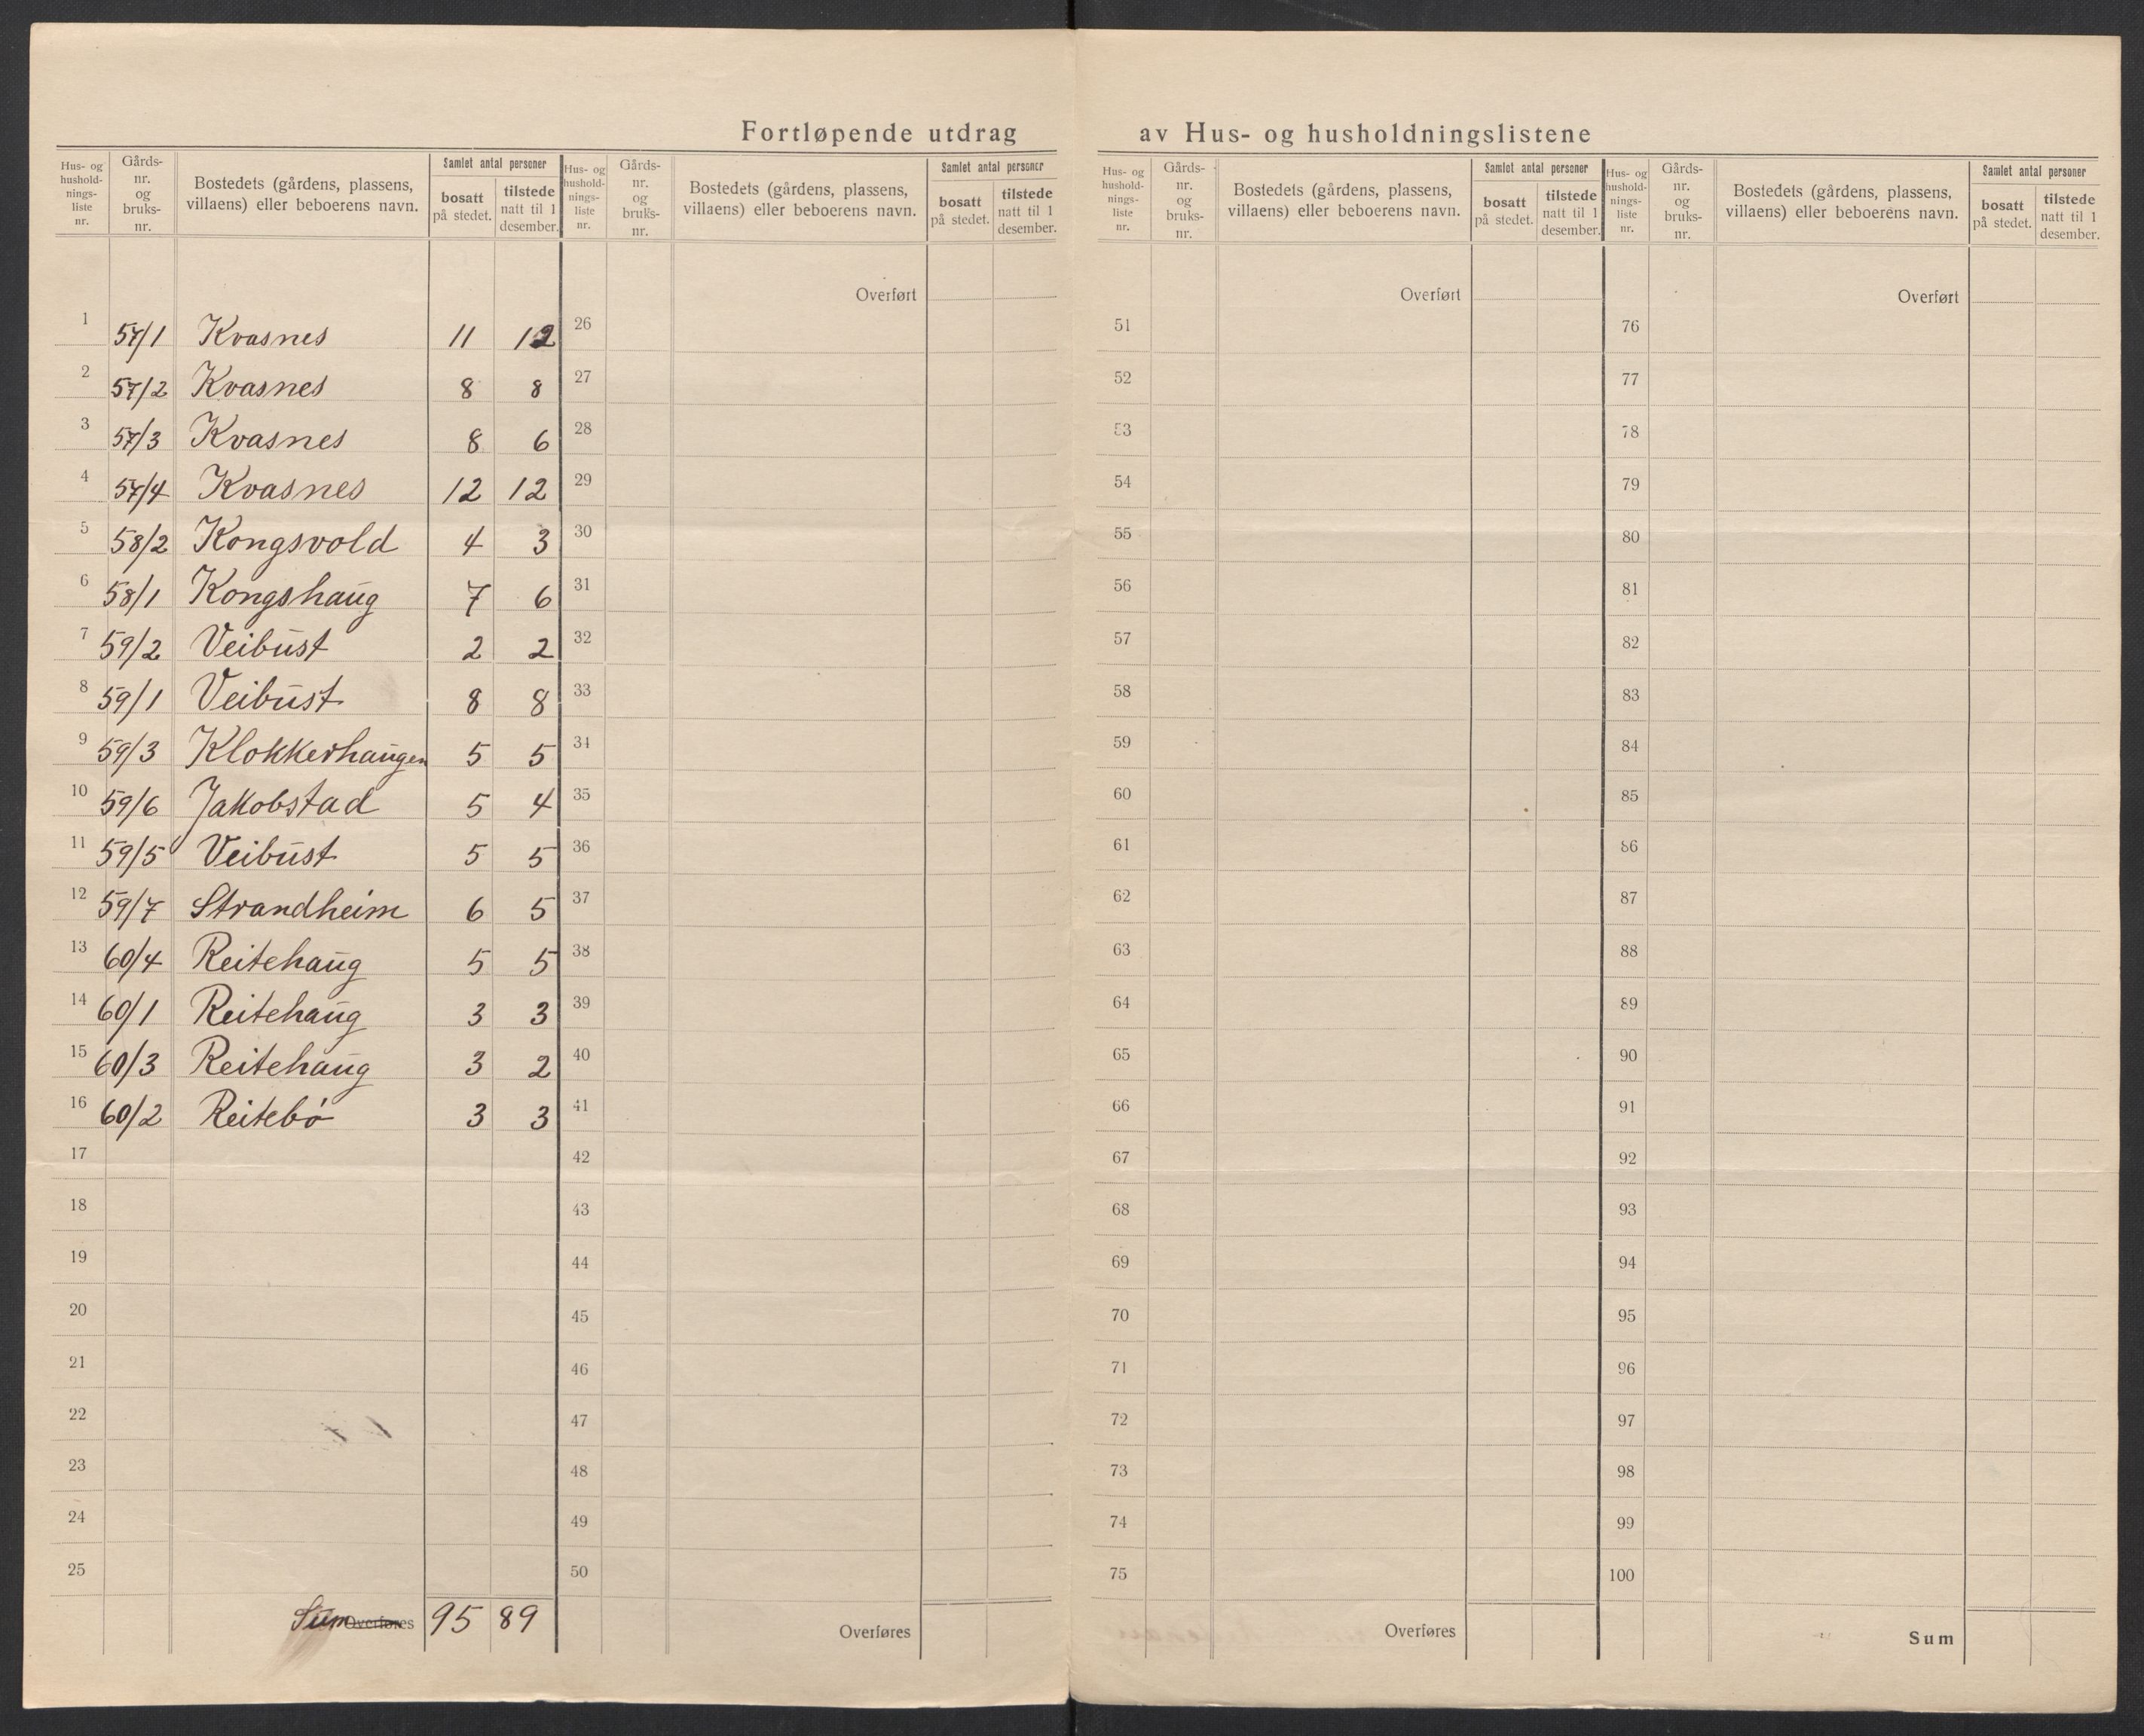 Fortløpende utdrag av Hus- og husholdningslistene
Hus- og hushold-nings-liste nr. Gårds-nr. og bruks-nr. Bostedets (gårdens, plassens, villaens) eller beboerens navn. Samlet antal personer bosatt på stedet. tilstede natt til 1 desember.
1 57/1 Kvasnes 11 12
2 57/2 Kvasnes 8 8
3 57/3 Kvasnes 8 6
4 57/4 Kvasnes 12 12
5 58/2 Kongsvold 4 3
6 58/1 Kongshaug 7 6
7 59/2 Veibust 2 2
8 59/1 Veibust 8 8
9 59/3 Klokkerhaugen 5 5
10 59/6 Jakobstad 5 4
11 59/5 Veibust 5 5
12 59/7 Strandheim 6 5
13 60/4 Reitehaug 5 5
14 60/1 Reitehaug 3 3
15 60/3 Reitehaug 3 2
16 60/2 Reitebø 3 3
17
18
19
20
21
22
23
24
25
Sum Overføres 95 89
Hus- og hushold-nings-liste nr. Gårds-nr. og bruks-nr. Bostedets (gårdens, plassens, villaens) eller beboerens navn. Samlet antal personer bosatt på stedet. tilstede natt til 1 desember.
Overført
26
27
28
29
30
31
32
33
34
35
36
37
38
39
40
41
42
43
44
45
46
47
48
49
50
Overføres
Hus- og hushold-nings-liste nr. Gårds-nr. og bruks-nr. Bostedets (gårdens, plassens, villaens) eller beboerens navn. Samlet antal personer bosatt på stedet. tilstede natt til 1 desember.
Overført
51
52
53
54
55
56
57
58
59
60
61
62
63
64
65
66
67
68
69
70
71
72
73
74
75
Overføres
Hus- og hushold-nings-liste nr. Gårds-nr. og bruks-nr. Bostedets (gårdens, plassens, villaens) eller beboerens navn. Samlet antal personer bosatt på stedet. tilstede natt til 1 desember.
Overført
76
77
78
79
80
81
82
83
84
85
86
87
88
89
90
91
92
93
94
95
96
97
98
99
100
Sum